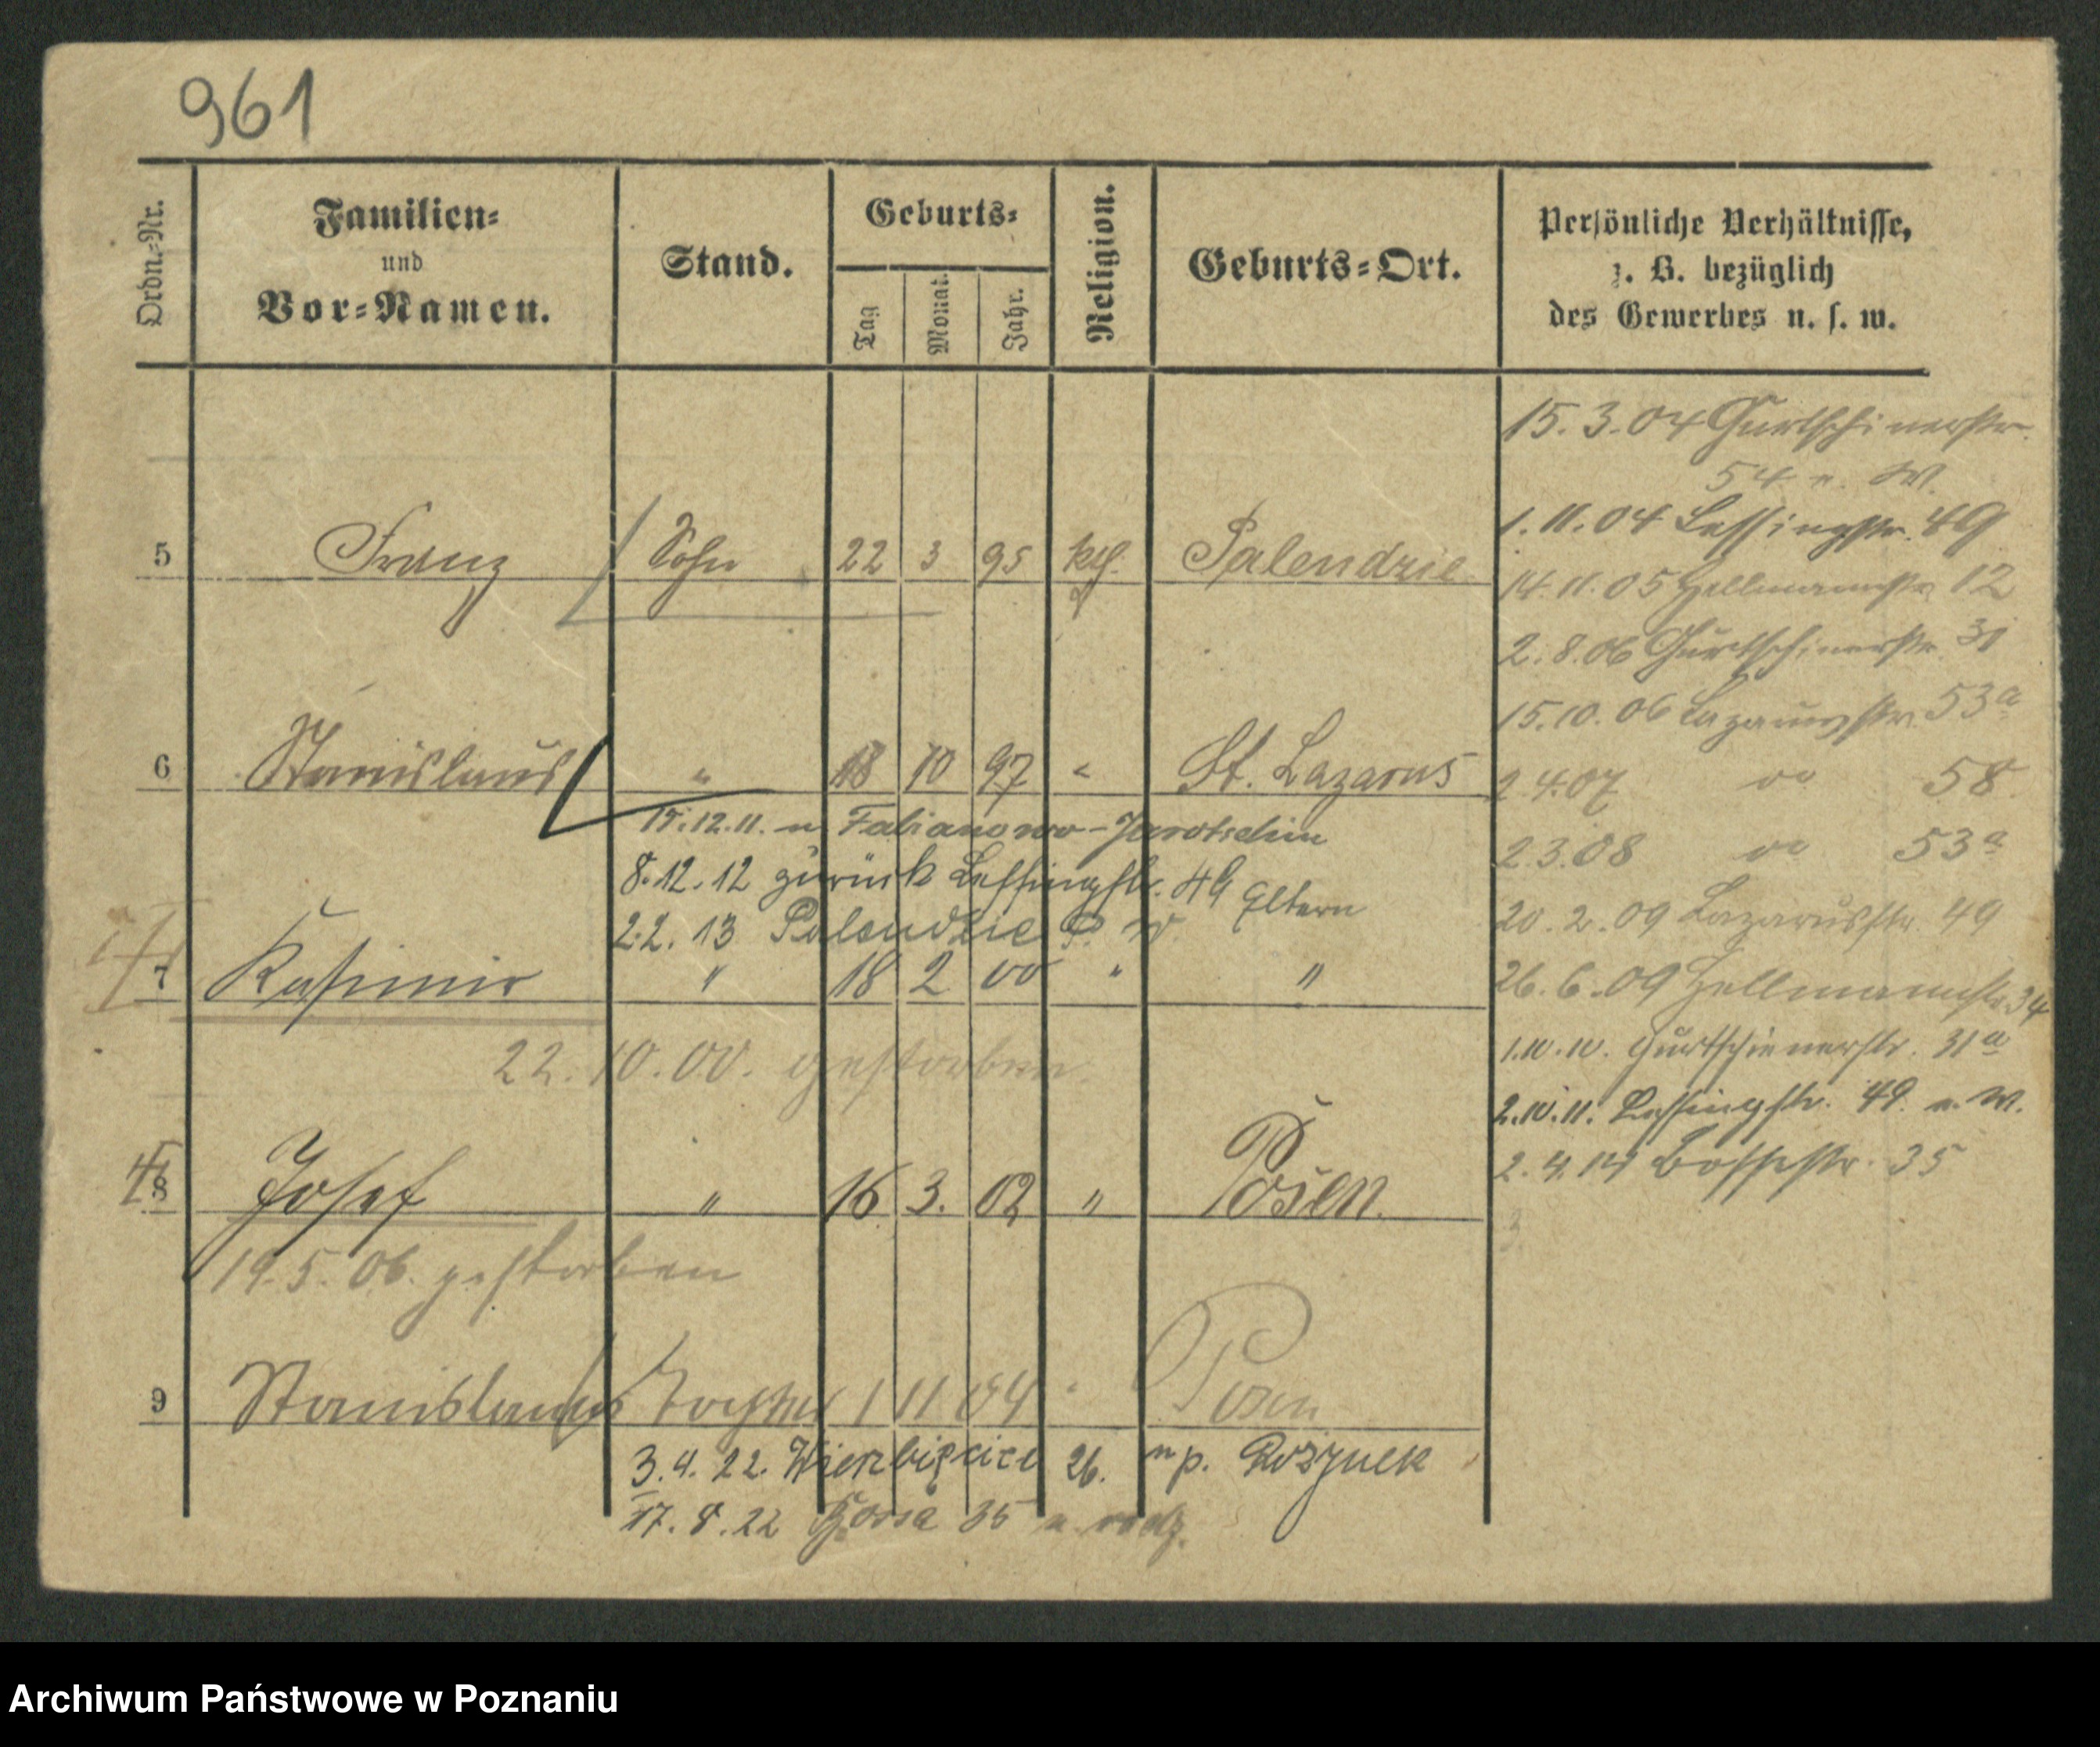 961
Ordn.-Nr.
Familien-
und
Vor-Namen.
Stand.
Geburts-
Tag
Monat.
Jahr.
Religion.
Geburts-Ort.
Persönliche Verhältnisse,
z. B. bezüglich
des Gewerbes u. s. w.
15. 3. 04 Gurtschinerstr.
54 n. W.
1. 11. 04 Lessingstr. 49
5 Franz Sohn 22 3 95 kth. Palendzie
14. 11. 05 Hellmannstr. 12
2. 8. 06 Gurtschinerstr. 31
15. 10. 06 Lazarusstr. 53a
6 Stanislaus " 18 10 97 " St. Lazarus
2 4. 07 do 58
15. 12. 11. n Fabianowo-Jarotschin
2 3. 08 do 53a
8. 12. 12 zurück Lessingstr. 49 Eltern
20. 2. 09 Lazarusstr. 49
22. 13 Palendzie P. W.
7 Kasimir " 18 2 00 " "
26. 6. 09 Hellmannstr. 34
22. 10. 00. gestorben.
1. 10. 10. Gurtschinerstr. 31a
2. 10. 11. Lessingstr. 49. n. W.
2. 4. 14 Bossestr. 35
8 Josef " 16 3. 02 " Posen.
19. 5. 06. gestorben
9 Stanislaus 1 11 04 " Posen
3. 4. 22. Wierzbięcice 26. n p.
17. 8. 22 35 u rodz.
Archiwum Państwowe w Poznaniu